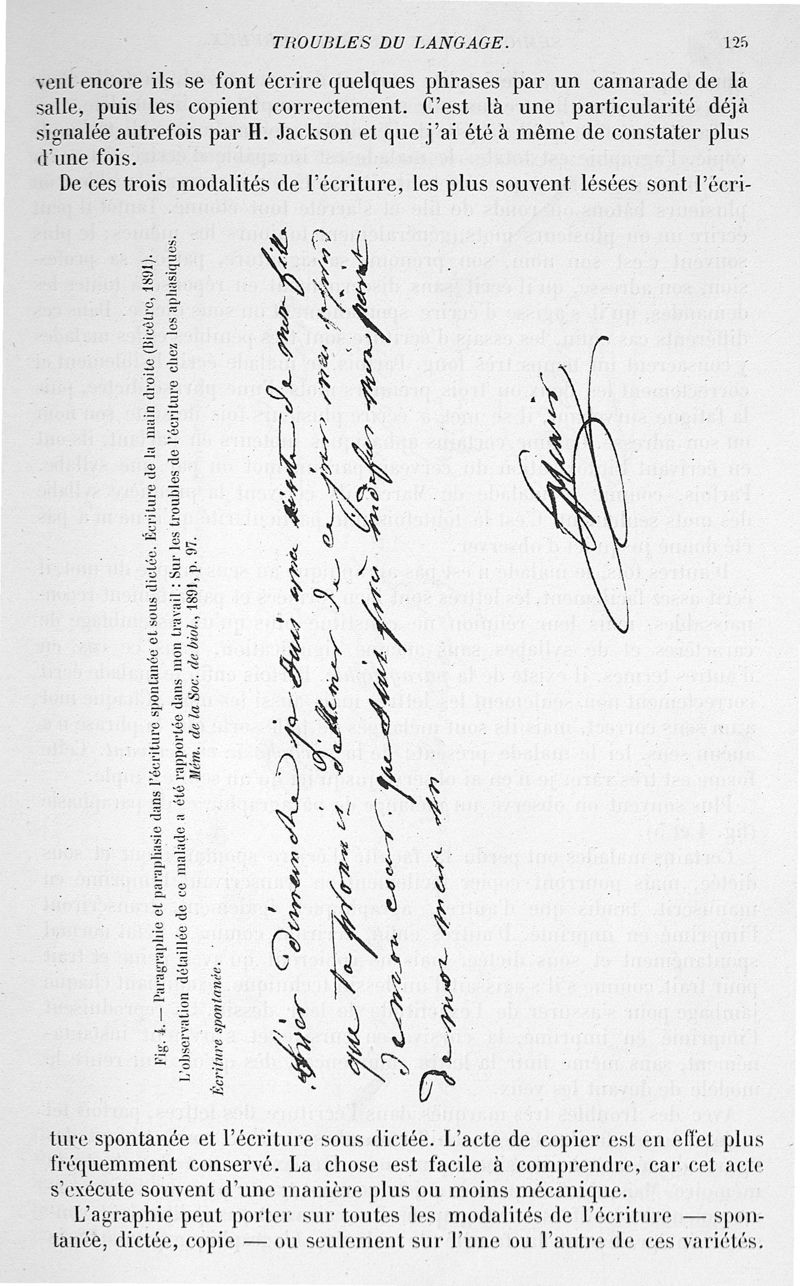 TROUBLES DU LANGAGE. 125
vent encore ils se font écrire quelques phrases par un camarade de la
salle, puis les copient correctement. C'est là une particularité déjà
signalée autrefois par H. Jackson et que j'ai été à même de constater plus
d'une fois.
De ces trois modalités de l'écriture, les plus souvent lésées sont l'écri-
Fig. 4. — Paragraphie et paraphasie dans l'écriture spontanée et sous dictée. Écriture de la main droite (Bicêtre, 1891).
L'observation détaillée de ce malade a été rapportée dans mon travail : Sur les troubles de l'écriture chez les aphasiques.
Mém. de la Soc. de biol., 1891, p. 97.
Écriture spontanée.
Dimanche je suis de mon fille
que ta promis de ce que mes
de mon cœur que suis mon
de mon
ture spontanée et l'écriture sous dictée. L'acte de copier est en effet plus
fréquemment conservé. La chose est facile à comprendre, car cet acte
s'exécute souvent d'une manière plus ou moins mécanique.
L'agraphie peut porter sur toutes les modalités de l'écriture — spon-
tanée, dictée, copie — ou seulement sur l'une ou l'autre de ces variétés.